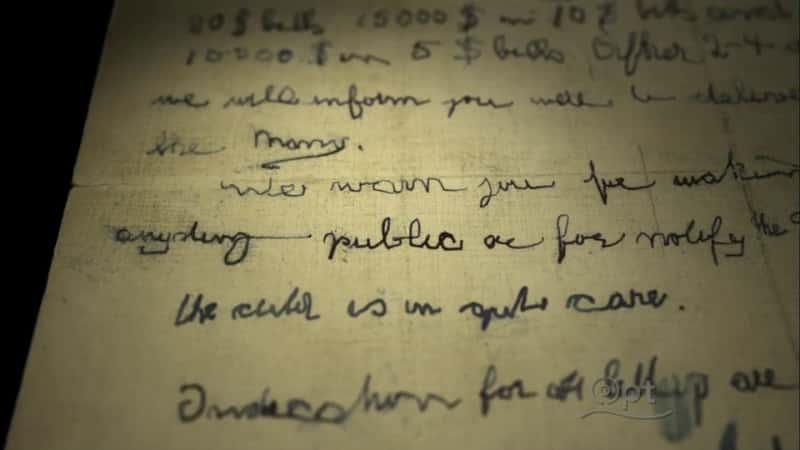 20$ bills 15000$ in 10$ bills and
10000$ in 5$ bills After 2-4
we will inform you were to deliver
the Mony.
We warn you for making
anyding public or for notify the
the child is in gute care.
Indication for all letters are
opt